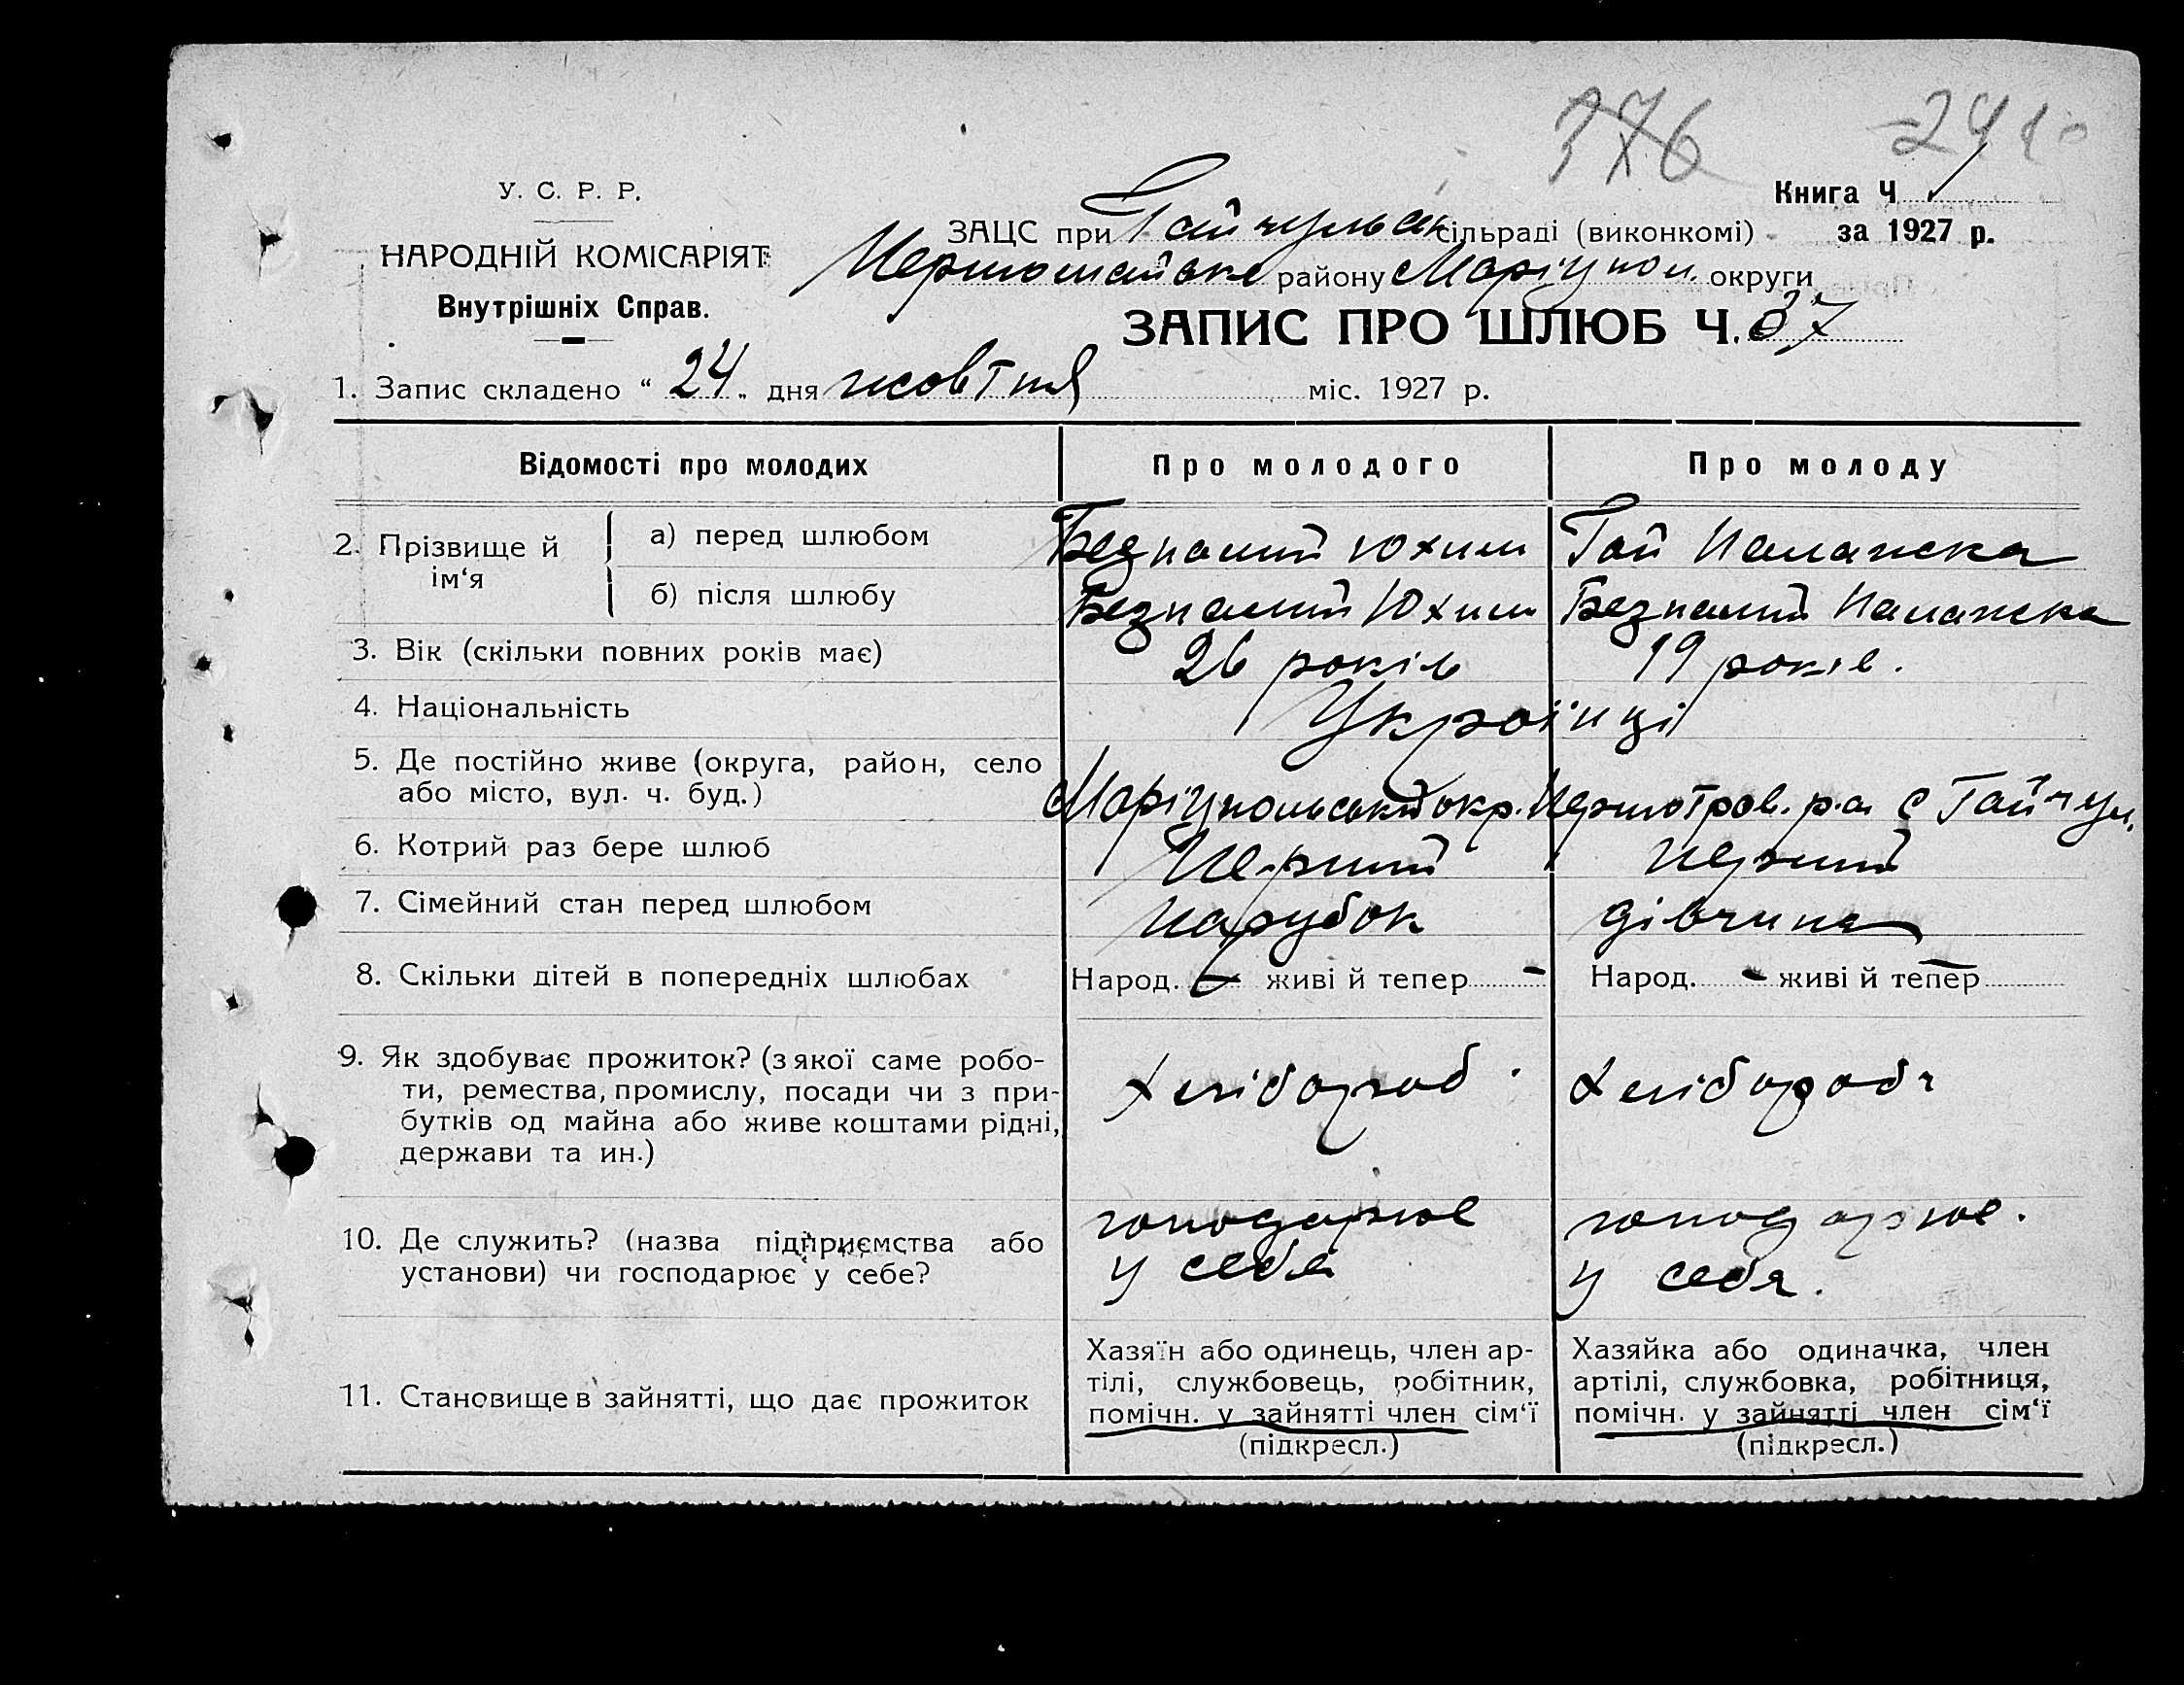 376 24
У. С. Р. Р.
Книга Ч. 1
НАРОДНІЙ КОМІСАРІЯТ
Внутрішніх Справ.
ЗАЦС при Гайчульськ сільраді (виконкомі) за 1927 р.
району Маріупол. округи
ЗАПИС ПРО ШЛЮБ Ч. 37
1. Запис складено " 24 " дня жовтня міс. 1927 р.
Відомості про молодих Про молодого Про молоду
2. Прізвище й ім'я
а) перед шлюбом Безпалий Юхим Гай Палажка
б) після шлюбу Безпалий Юхим Безпалий Палажка
3. Вік (скільки повних років має) 26 років 19 років.
4. Національність Українці
5. Де постійно живе (округа, район, село
або місто, вул. ч. буд.) Маріупольський окр. р-а с Гайчул.
6. Котрий раз бере шлюб Перший Перший
7. Сімейний стан перед шлюбом Парубок дівчина
8. Скільки дітей в попередніх шлюбах Народ. – живі й тепер – Народ. – живі й тепер –
9. Як здобуває прожиток? (з якої саме робо-
ти, ремества, промислу, посади чи з при-
бутків од майна або живе коштами рідні,
держави та ин.)
Хлібороб. Хлібороб
10. Де служить? (назва підприємства або
установи) чи господарює у себе?
господарює
у себя
господарює.
у себя.
11. Становище в зайнятті, що дає прожиток
Хазяїн або одинець, член ар-
тілі, службовець, робітник,
помічн. у зайнятті член сім'ї
(підкресл.)
Хазяйка або одиначка, член
артілі, службовка, робітниця,
помічн. у зайнятті член сім'ї
(підкресл.)